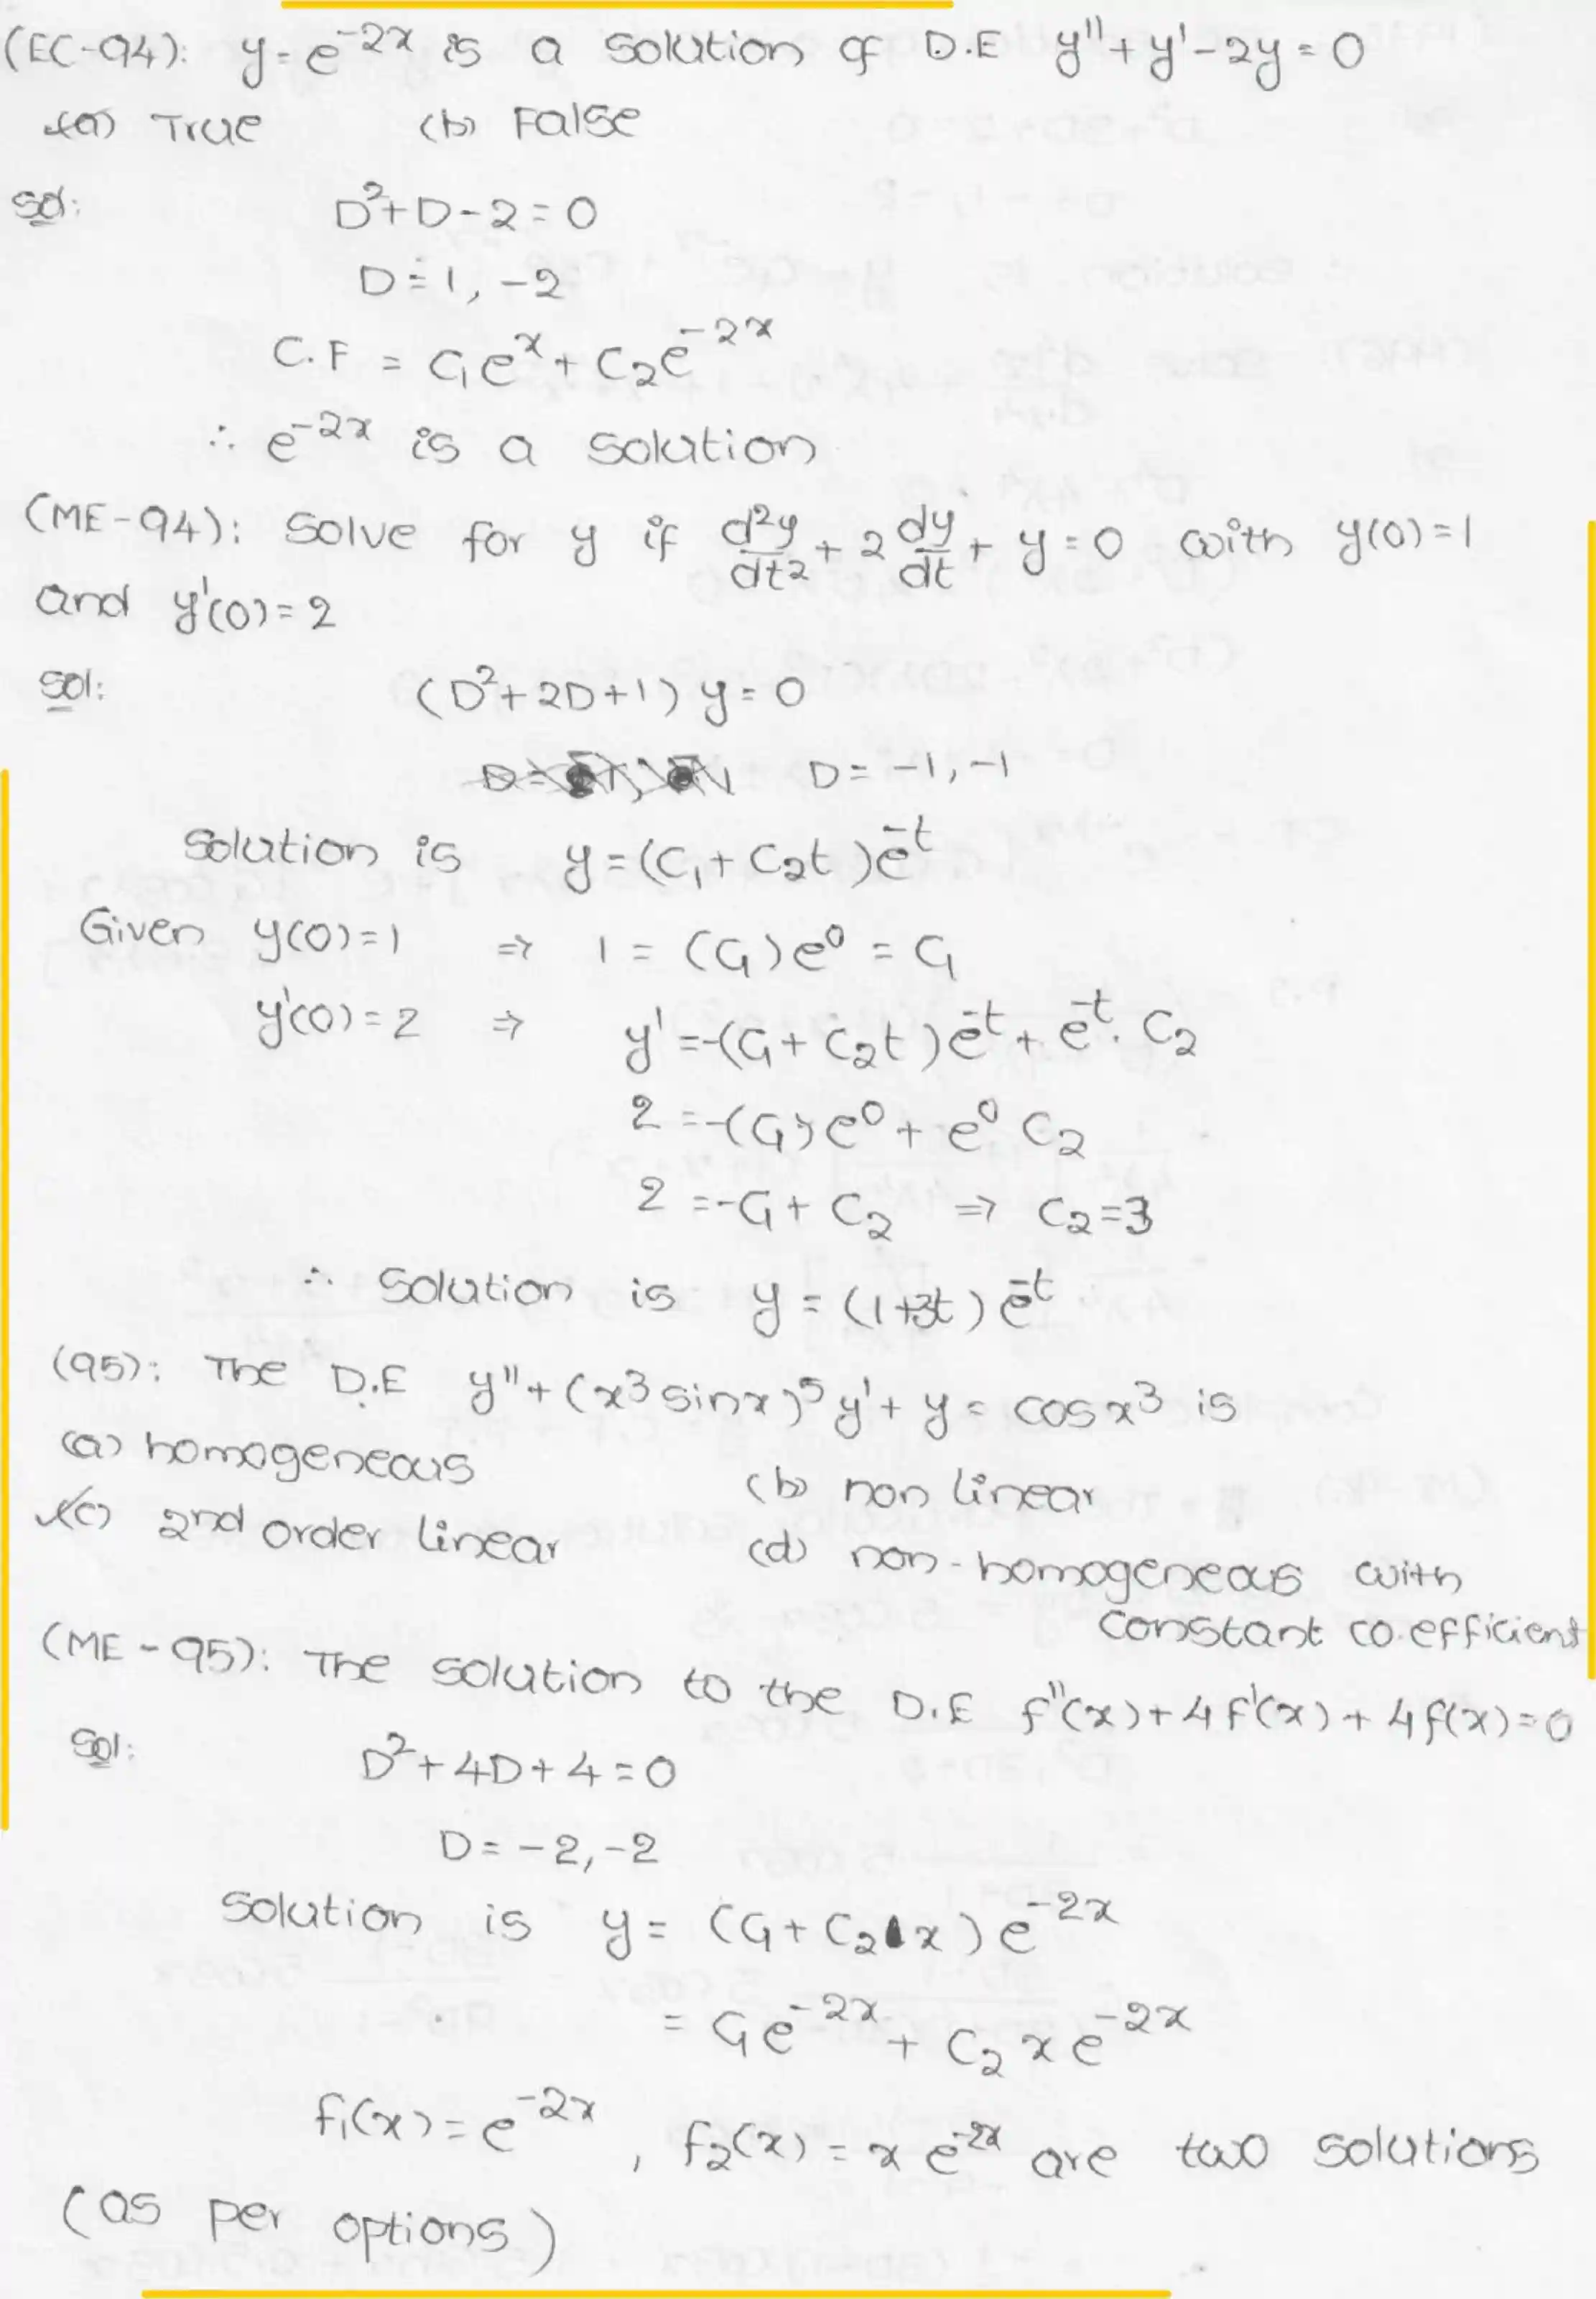 (EC-94): y = e^-2x is a solution of D.E y'' + y' - 2y = 0
(a) True (b) False
Sol:
D² + D - 2 = 0
D = 1, -2
C.F = C₁e^x + C₂e^-2x
∴ e^-2x is a solution
(ME-94): Solve for y if d²y/dt² + 2 dy/dt + y = 0 with y(0) = 1
and y'(0) = 2
Sol:
(D² + 2D + 1) y = 0
D = -1, -1
Solution is y = (C₁ + C₂t)e^-t
Given y(0) = 1 ⇒ 1 = (C₁)e⁰ = C₁
y'(0) = 2 ⇒ y' = -(C₁ + C₂t)e^-t + e^-t. C₂
2 = -(C₁)e⁰ + e⁰ C₂
2 = -C₁ + C₂ ⇒ C₂ = 3
∴ Solution is y = (1+3t) e^-t
(95): The D.E y'' + (x³ sinx)⁵ y' + y = cos x³ is
(a) homogeneous (b) non linear
(c) 2nd order linear (d) non-homogeneous with
constant co.efficient
(ME-95): The solution to the D.E f''(x) + 4f'(x) + 4f(x) = 0
Sol:
D² + 4D + 4 = 0
D = -2, -2
Solution is y = (C₁ + C₂ x) e^-2x
= C₁e^-2x + C₂ x e^-2x
f₁(x) = e^-2x , f₂(x) = x e^-2x are two solutions
(as per options)